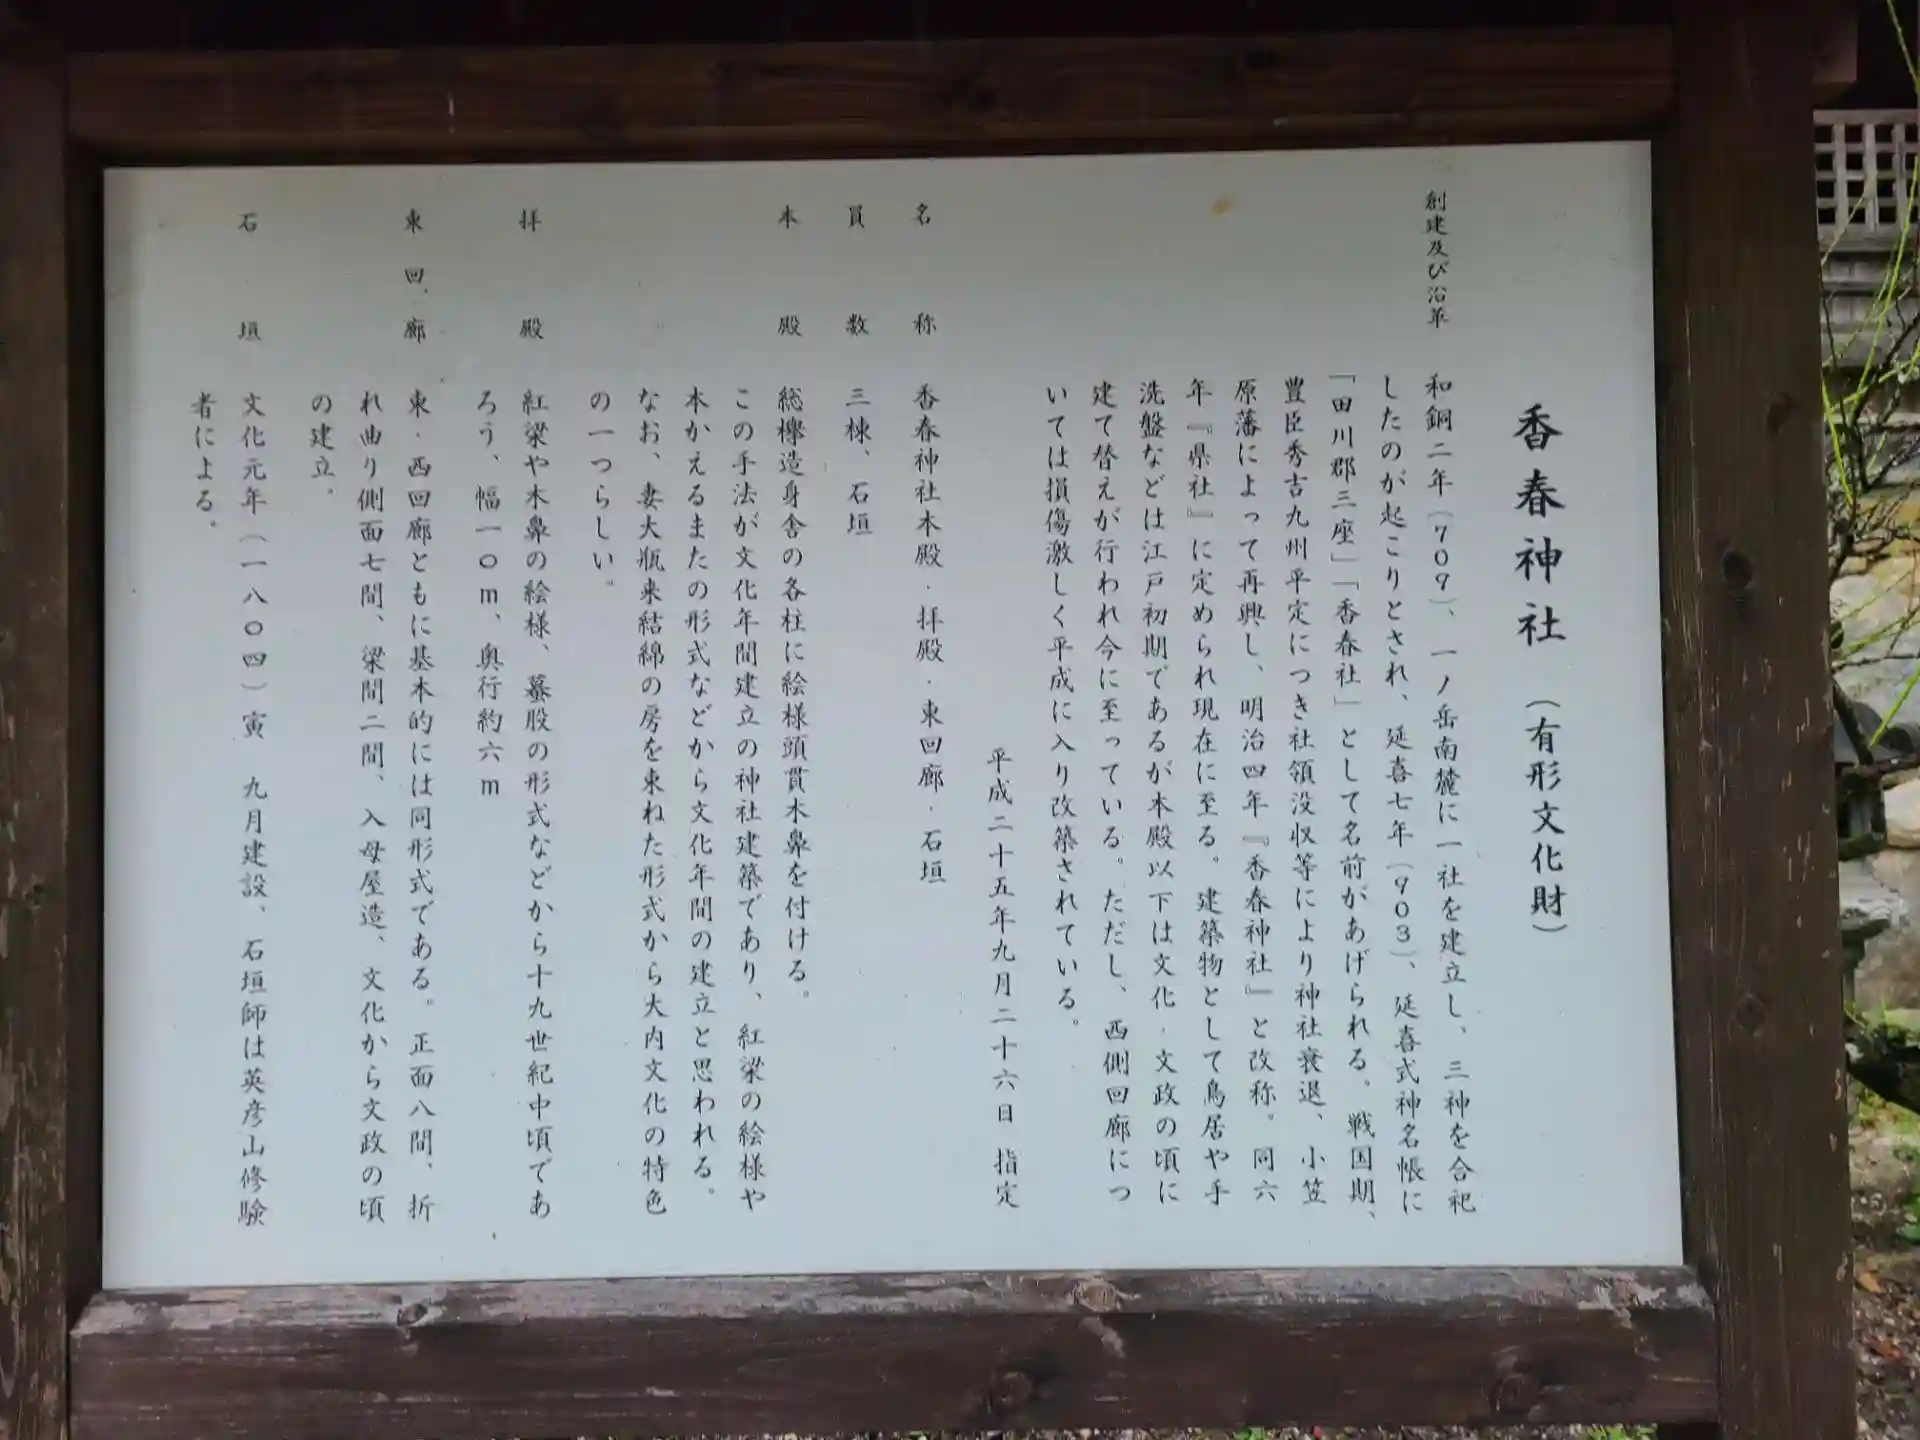 香春神社 (有形文化財)
創建及び沿革 和銅二年(709)、一ノ岳南麓に一社を建立し、三神を合祀
したのが起こりとされ、延喜七年(903)、延喜式神名帳に
「田川郡三座」「香春社」として名前があげられる。戦国期、
豊臣秀吉九州平定につき社領没収等により神社衰退、小笠
原藩によって再興し、明治四年『香春神社』と改称。同六
年『県社』に定められ現在に至る。建築物として鳥居や手
洗盤などは江戸初期であるが本殿以下は文化・文政の頃に
建て替えが行われ今に至っている。ただし、西側回廊につ
いては損傷激しく平成に入り改築されている。
平成二十五年九月二十六日 指定
名称 香春神社本殿・拝殿・東回廊・石垣
員数 三棟、石垣
本殿 総欅造身舎の各柱に絵様頭貫木鼻を付ける。
この手法が文化年間建立の神社建築であり、紅梁の絵様や
本かえるまたの形式などから文化年間の建立と思われる。
なお、妻大瓶来結綿の房を束ねた形式から大内文化の特色
の一つらしい。
拝殿 紅梁や木鼻の絵様、蟇股の形式などから十九世紀中頃であ
ろう、幅一〇m、奥行約六m
東回廊 東・西回廊ともに基本的には同形式である。正面八間、折
れ曲り側面七間、梁間二間、入母屋造、文化から文政の頃
の建立。
石垣 文化元年(一八〇四)寅 九月建設、石垣師は英彦山修験
者による。